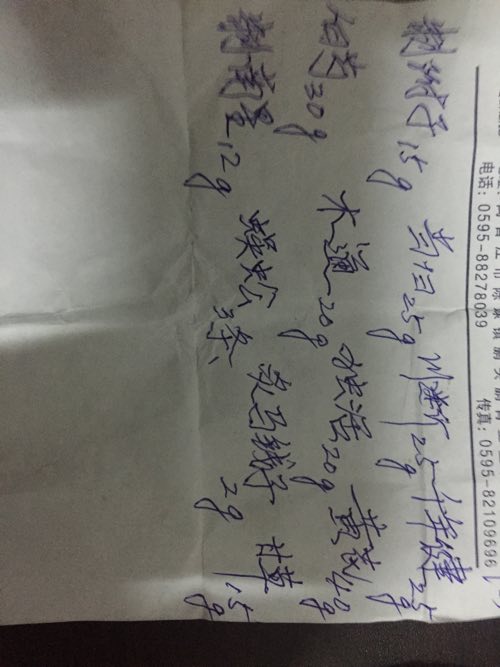 市陈埭镇
电话: 0595-88278039 传真: 0595-82109696
制附子15g 当归25g 川断25g 千年健25g
白芍30g 木通20g 独活20g 黄芪40g
制南星12g 蜈蚣3条、 炙马钱子2g 甘草15g